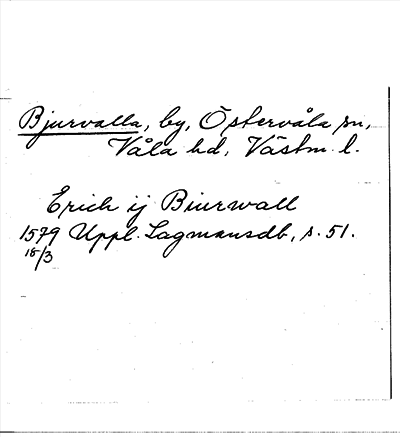 Bjurvalla, by, Östervåla sn,
Våla hd, Västm. l.
Erich ij Biurwall
1579 Uppl. Lagmansdb, s. 51.
18/3